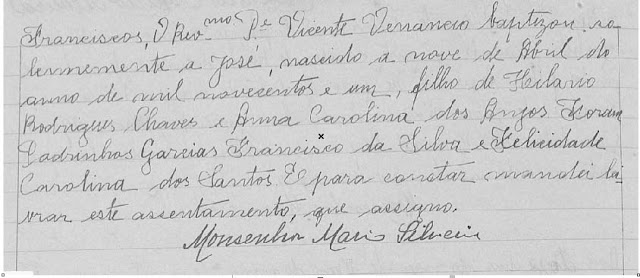 Franciscos, o Rev.mos Pe Vicente Venancio baptizou so
lemnemente a José, nascido a nove de Abril do
anno de mil novecentos e um, filho de Hilario
Rodrigues Chaves e Anna Carolina dos Anjos Foram
Padrinhos Garcias Francisco da Silva e Felicidade
Carolina dos Santos E para constar mandei la-
vrar este assentamento, que assigno.
Monsenhor Mario Silveira